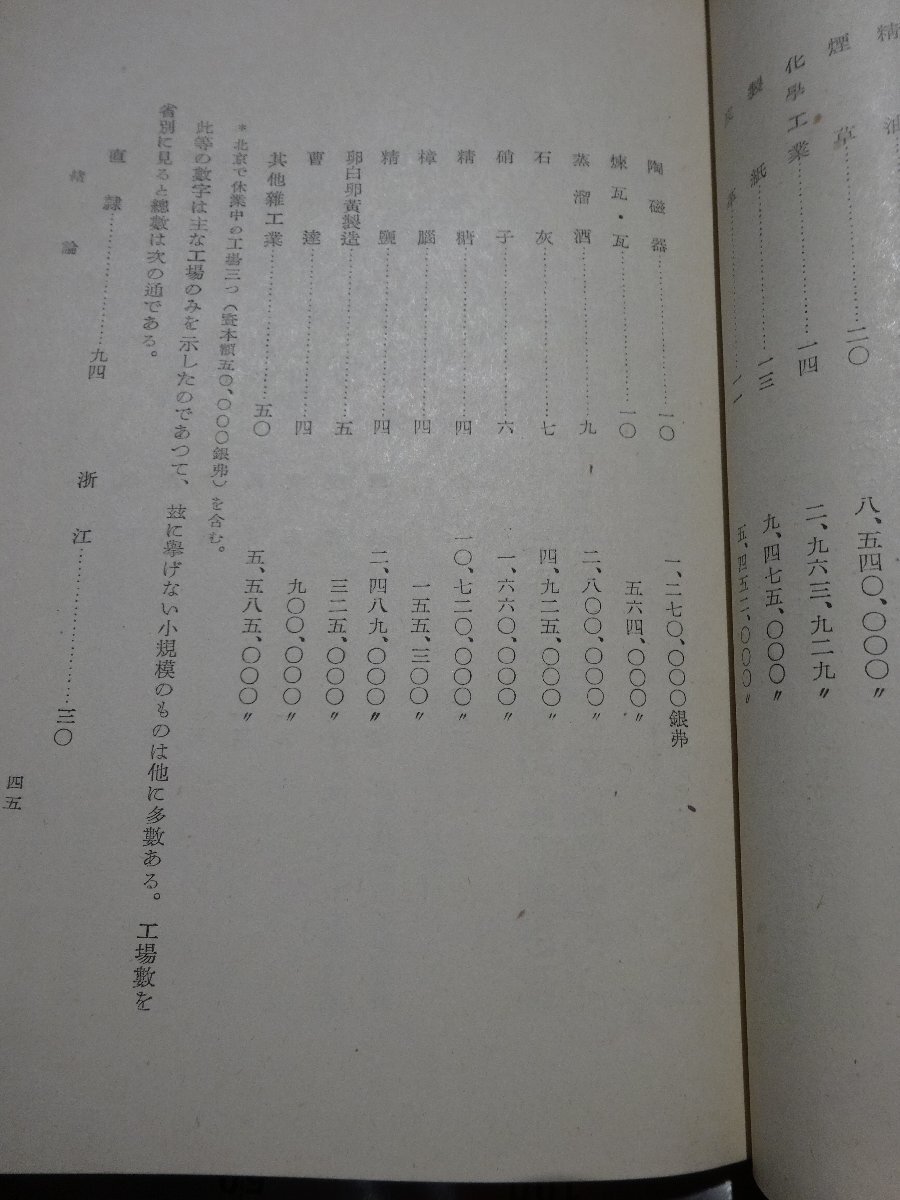 油
煙草……二〇 八、五四〇、〇〇〇〃
化學工業……一四 二、九六三、九二九〃
製紙……一三 九、四七五、〇〇〇〃
一一 五、四五二、〇〇〇〃
陶磁器……一〇 一、二七〇、〇〇〇銀弗
煉瓦・瓦……一〇 五六四、〇〇〇〃
蒸溜酒……九 二、八〇〇、〇〇〇〃
石灰……七 四、九二五、〇〇〇〃
硝子……六 一、六六〇、〇〇〇〃
精糖……四 一〇、七二〇、〇〇〇〃
樟腦……四 一五五、三〇〇〃
精鹽……四 二、四八九、〇〇〇〃
卵白卵黄製造……五 三二五、〇〇〇〃
曹達……四 九〇〇、〇〇〇〃
其他雜工業……五〇 五、五八五、〇〇〇〃
＊北京で休業中の工場三つ（資本額五〇、〇〇〇銀弗）を含む。
此等の數字は主な工場のみを示したのであつて、玆に擧げない小規模のものは他に多數ある。工場數を
省別に見ると總數は次の通である。
直隷……九四 浙江……三〇
緒論 四五